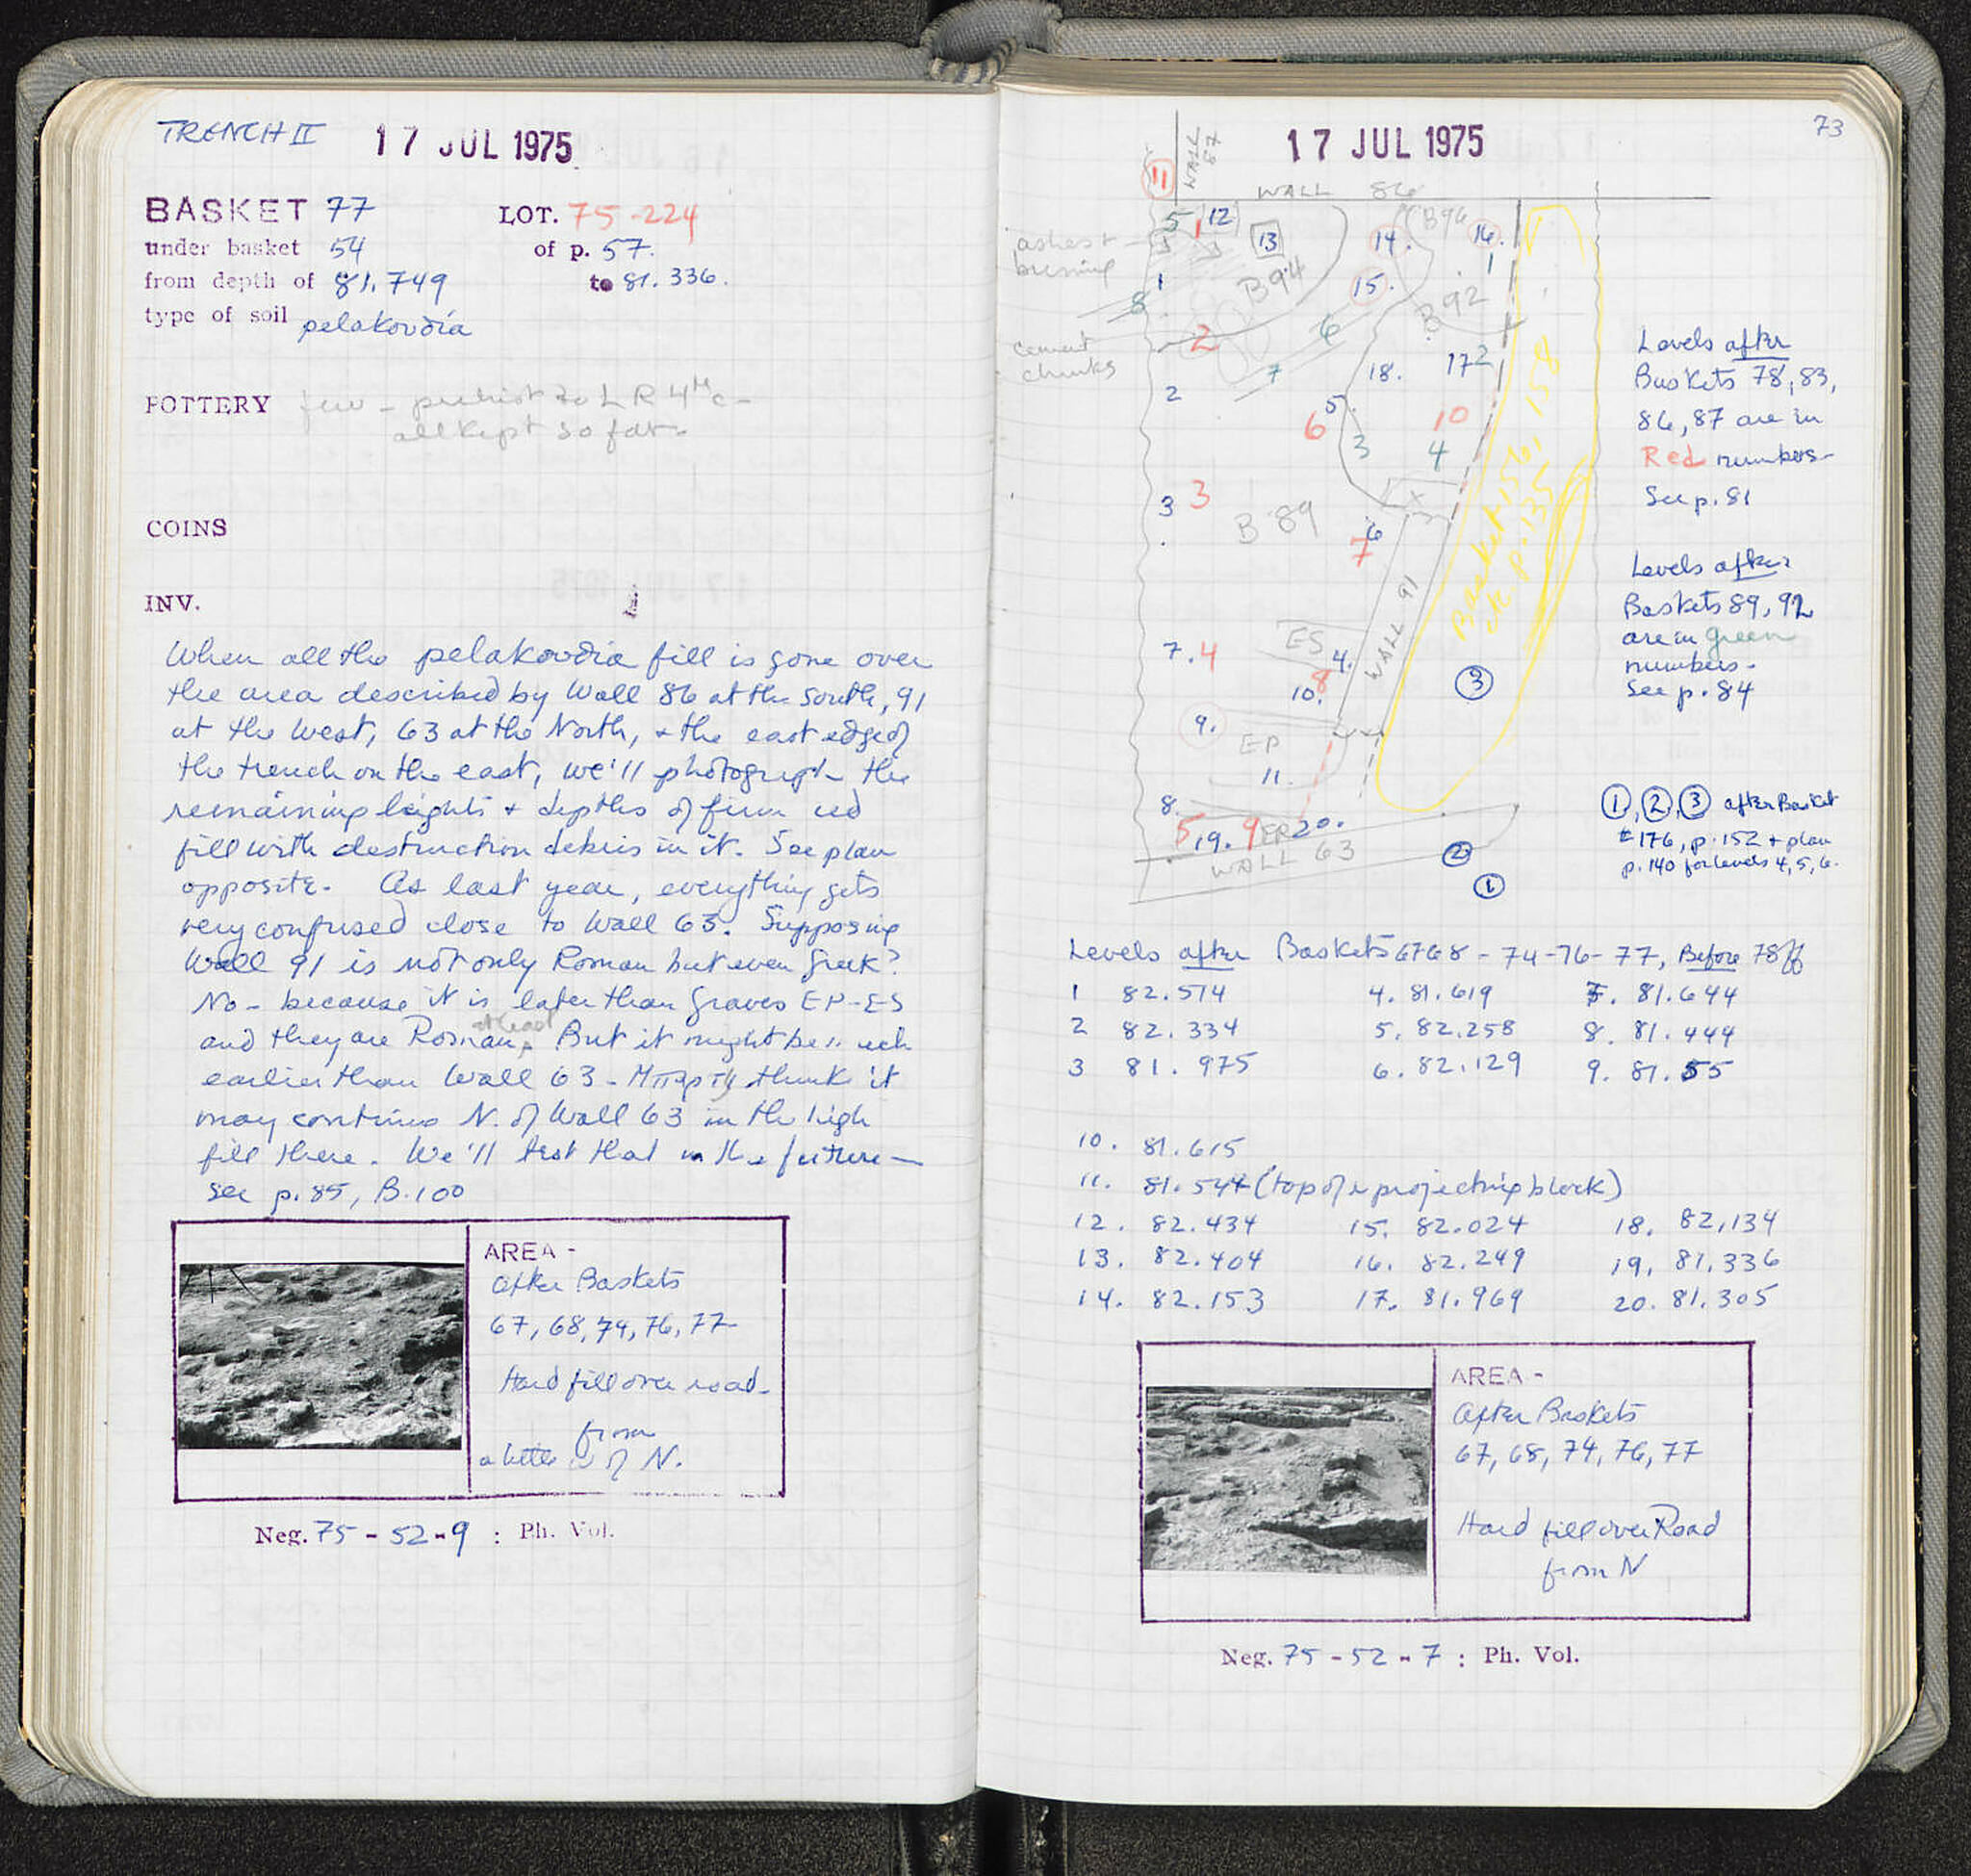 TRENCH II 17 JUL 1975
BASKET 77 LOT. 75-224
under basket 54 of p. 57.
from depth of 81.749 to 81.336.
type of soil pelakoudia
POTTERY few - prehist to LR 4th c -
all kept so far.
COINS
INV.
When all the pelakoudia fill is gone over
the area described by Wall 86 at the south, 91
at the west, 63 at the North, + the east edge of
the trench on the east, we'll photograph the
remaining heights + depths of firm red
fill with destruction debris in it. See plan
opposite. As last year, everything gets
very confused close to Wall 63. Supposing
Wall 91 is not only Roman but even Greek?
No - because it is later than graves EP-ES
at least
and they are Roman. But it might be much
earlier than Wall 63 - think it
may continue N. of Wall 63 in the high
fill there. We'll test that in the future -
see p. 85, B. 100
AREA -
After Baskets
67, 68, 74, 76, 77
Hard fill over road -
from
a little of N.
Neg. 75 - 52 - 9 : Ph. Vol.
17 JUL 1975 73
WALL 87
11
WALL 86
5 1 12 13 14. B96 16.
ashes +
burning
1 B94 15. B92 1
8
cement
chunks
2 6 7 18. 17 2
2 5 6 10
3 4
3 3 B 89 6 7
WALL 91
Basket 156, 158
ck. p. 135
7. 4 ES 4. 8 10. 3
9. EP
11.
8. 5 19. 9 EP 20.
WALL 63
2
1
Levels after
Baskets 78, 83,
86, 87 are in
Red numbers -
See p. 81
Levels after
Baskets 89, 92
are in green
numbers -
See p. 84
1, 2, 3 after Basket
#176, p. 152 + plan
p. 140 for levels 4, 5, 6.
Levels after Baskets 67 68 - 74 - 76 - 77, Before 78ff
1 82.574 4. 81.619 7. 81.644
2 82.334 5. 82.258 8. 81.444
3 81.975 6. 82.129 9. 81.55
10. 81.615
11. 81.544 (top of projecting block)
12. 82.434 15. 82.024 18. 82,134
13. 82.404 16. 82.249 19, 81.336
14. 82.153 17. 81.969 20. 81.305
AREA -
After Baskets
67, 68, 74, 76, 77
Hard fill over Road
from N
Neg. 75 - 52 - 7 : Ph. Vol.